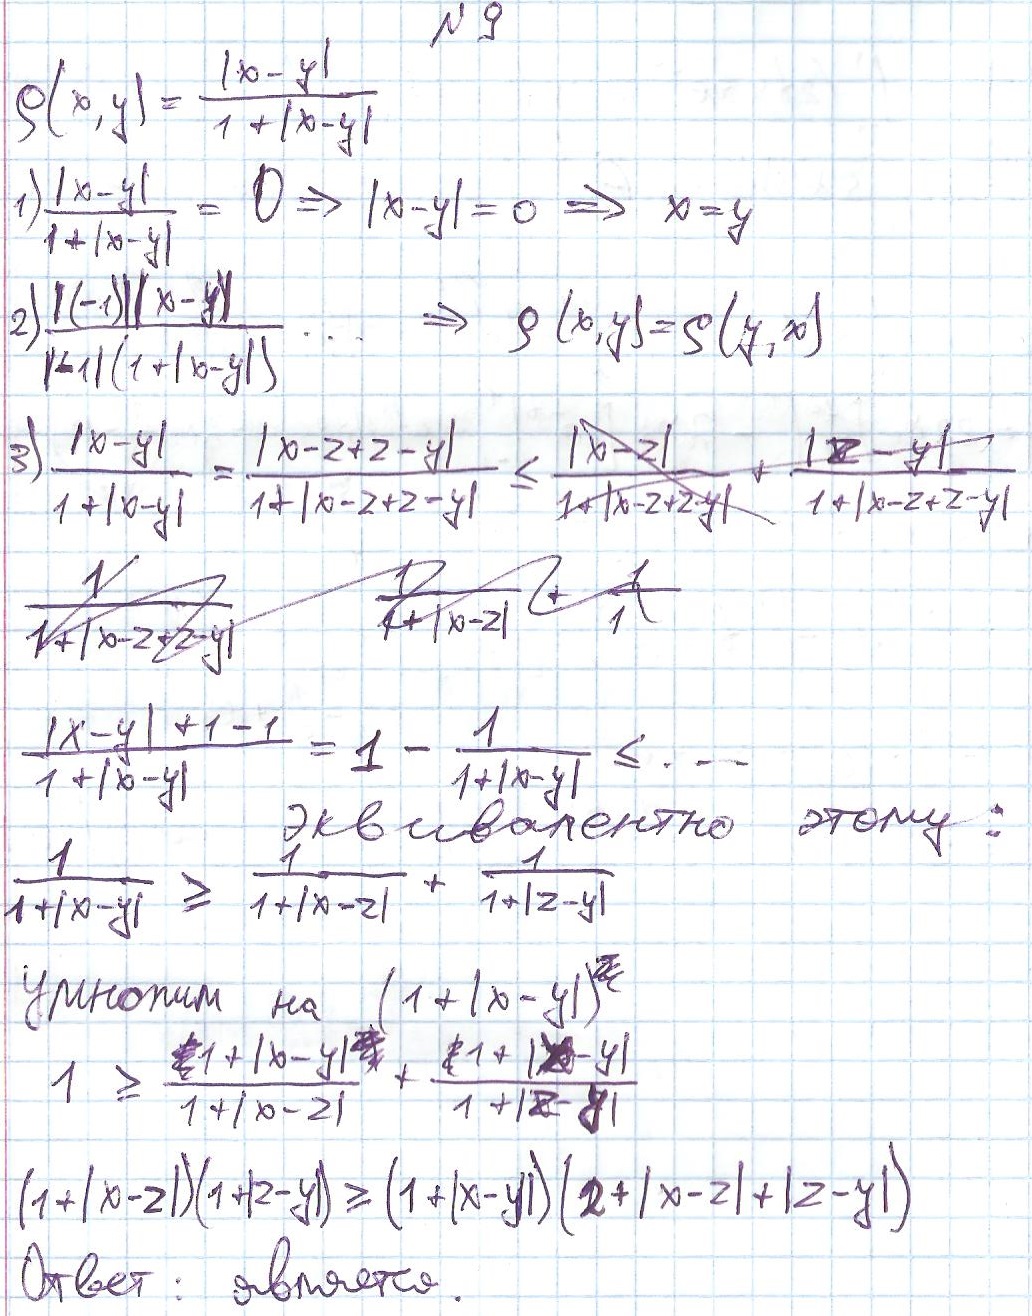 № 9
ρ(x,y) = |x-y| / (1+|x-y|)
1) |x-y| / (1+|x-y|) = 0 ⇒ |x-y| = 0 ⇒ x=y
2) |(-1)||x-y| / (|-1|(1+|x-y|)) .... ⇒ ρ(x,y)=ρ(y,x)
3) |x-y| / (1+|x-y|) = |x-z+z-y| / (1+|x-z+z-y|) ≤ |x-z| / (1+|x-z+z-y|) + |z-y| / (1+|x-z+z-y|)
1 / (1+|x-z+z-y|) 1 / (1+|x-z|) + 1 / 1
(|x-y|+1-1) / (1+|x-y|) = 1 - 1 / (1+|x-y|) ≤ ....
эквивалентно этому:
1 / (1+|x-y|) ≥ 1 / (1+|x-z|) + 1 / (1+|z-y|)
Умножим на (1+|x-y|)
1 ≥ (1+|x-y|) / (1+|x-z|) + (1+|x-y|) / (1+|z-y|)
(1+|x-z|)(1+|z-y|) ≥ (1+|x-y|)(2+|x-z|+|z-y|)
Ответ: является.